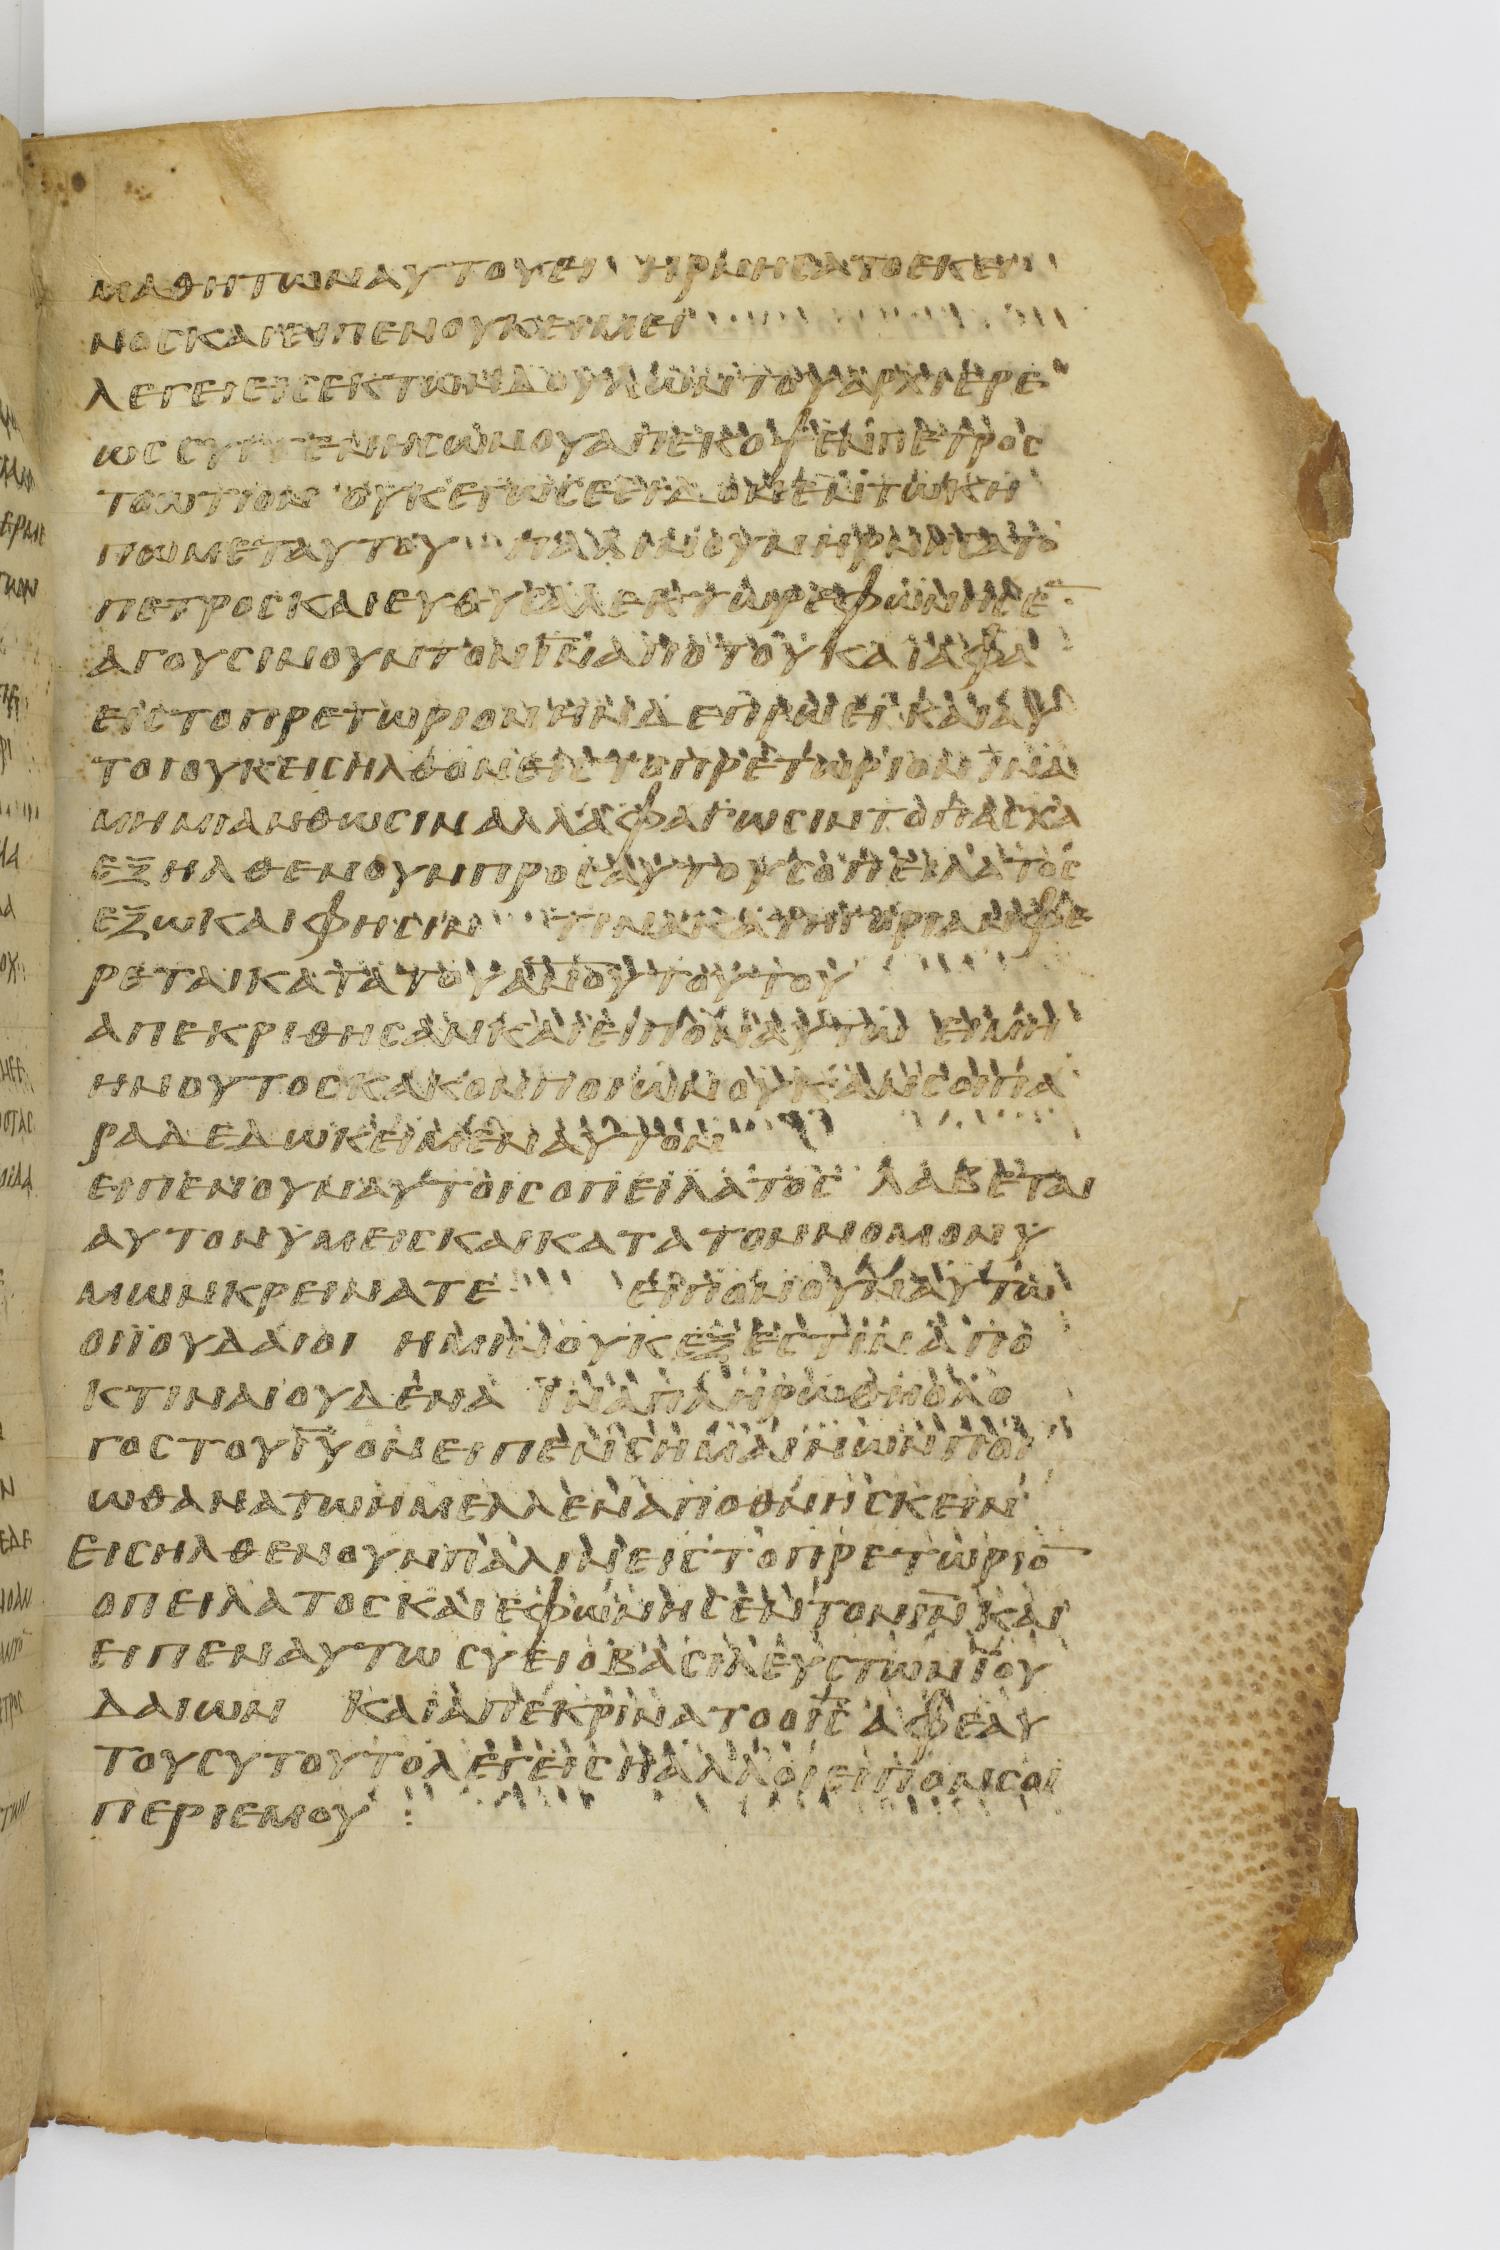 ΜΑΘΗΤΩΝΑΥΤΟΥΕΙ ΗΡΝΗΣΑΤΟΕΚΕΙ
ΝΟΣΚΑΙΕΙΠΕΝΟΥΚΕΙΜΕΙ
ΛΕΓΕΙΕΙΣΕΚΤΩΝΔΟΥΛΩΝΤΟΥΑΡΧΙΕΡΕ
ΩΣΣΥΓΓΕΝΗΣΩΝΟΥΑΠΕΚΟΨΕΝΠΕΤΡΟΣ
ΤΟΩΤΙΟΝ ΟΥΚΕΓΩΣΕΕΙΔΟΝΕΝΤΩΚΗ
ΠΩΜΕΤΑΥΤΟΥ ΠΑΛΙΝΟΥΝΗΡΝΗΣΑΤΟ
ΠΕΤΡΟΣΚΑΙΕΥΘΥΣΑΛΕΚΤΩΡΕΦΩΝΗΣΕ̅
ΑΓΟΥΣΙΝΟΥΝΤΟΝΙ̅Ν̅ΑΠΟΤΟΥΚΑΙΑΦΑ
ΕΙΣΤΟΠΡΕΤΩΡΙΟΝΗΝΔΕΠΡΩΕΙΚΑΙΑΥ
ΤΟΙΟΥΚΕΙΣΗΛΘΟΝΕΙΣΤΟΠΡΕΤΩΡΙΟΝΪΝΑ
ΜΗΜΙΑΝΘΩΣΙΝΑΛΛΑΦΑΓΩΣΙΝΤΟΠΑΣΧΑ
ΕΞΗΛΘΕΝΟΥΝΠΡΟΣΑΥΤΟΥΣΟΠΕΙΛΑΤΟΣ
ΕΞΩΚΑΙΦΗΣΙΝ ΤΙΝΑΚΑΤΗΓΟΡΙΑΝΦΕ
ΡΕΤΑΙΚΑΤΑΤΟΥΑ̅Ν̅Ο̅Υ̅ΤΟΥΤΟΥ
ΑΠΕΚΡΙΘΗΣΑΝΚΑΙΕΙΠΟΝΑΥΤΩ ΕΙΜΗ
ΗΝΟΥΤΟΣΚΑΚΟΝΠΟΙΩΝΟΥΚΑΝΣΟΙΠΑ
ΡΑΔΕΔΩΚΕΙΜΕΝΑΥΤΟΝ
ΕΙΠΕΝΟΥΝΑΥΤΟΙΣΟΠΕΙΛΑΤΟΣ ΛΑΒΕΤΑΙ
ΑΥΤΟΝΥΜΕΙΣΚΑΙΚΑΤΑΤΟΝΝΟΜΟΝΥ
ΜΩΝΚΡΕΙΝΑΤΕ ΕΙΠΟΝΟΥΝΑΥΤΩ
ΟΙΪΟΥΔΑΙΟΙ ΗΜΙΝΟΥΚΕΞΕΣΤΙΝΑΠΟ
ΚΤΙΝΑΙΟΥΔΕΝΑ ΪΝΑΠΛΗΡΩΘΗΟΛΟ
ΓΟΣΤΟΥΙ̅Υ̅ΟΝΕΙΠΕΝΣΗΜΑΙΝΩΝΠΟΙ
ΩΘΑΝΑΤΩΗΜΕΛΛΕΝΑΠΟΘΝΗΣΚΕΙΝ
ΕΙΣΗΛΘΕΝΟΥΝΠΑΛΙΝΕΙΣΤΟΠΡΕΤΩΡΙΟ̅
ΟΠΕΙΛΑΤΟΣΚΑΙΕΦΩΝΗΣΕΝΤΟΝΙ̅Ν̅ΚΑΙ
ΕΙΠΕΝΑΥΤΩΣΥΕΙΟΒΑΣΙΛΕΥΣΤΩΝΪΟΥ
ΔΑΙΩΝ ΚΑΙΑΠΕΚΡΙΝΑΤΟΟΙ̅Σ̅ΑΦΕΑΥ
ΤΟΥΣΥΤΟΥΤΟΛΕΓΕΙΣΗΑΛΛΟΙΕΙΠΟΝΣΟΙ
ΠΕΡΙΕΜΟΥ :